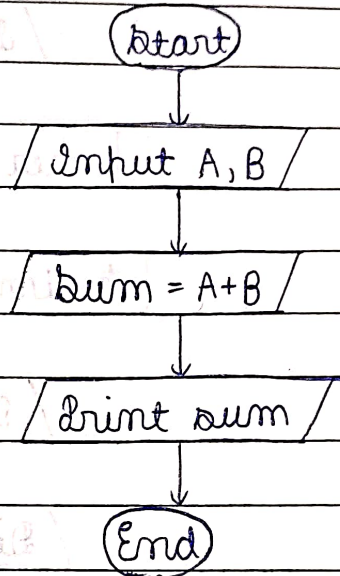 Start
Input A, B
Sum = A+B
Print sum
End